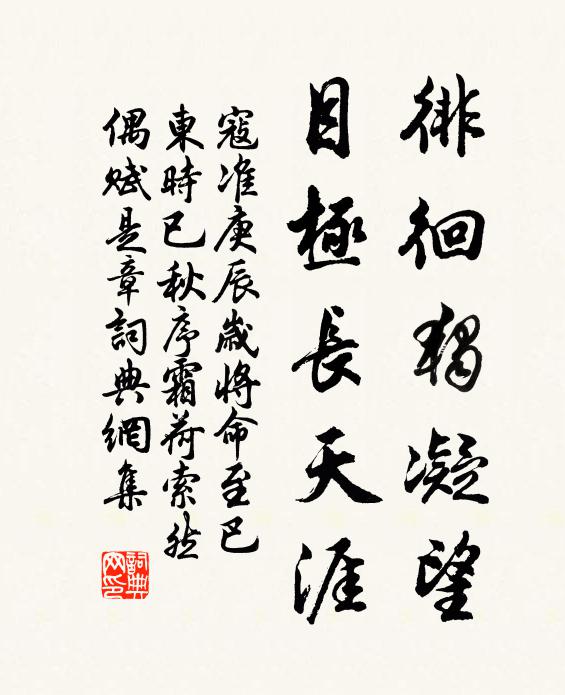 徘徊獨凝望
目極長天涯
寇准庚辰歲將命至巴
東時已秋序霜荷索然
偶賦是章詞典網集
詞典
网印